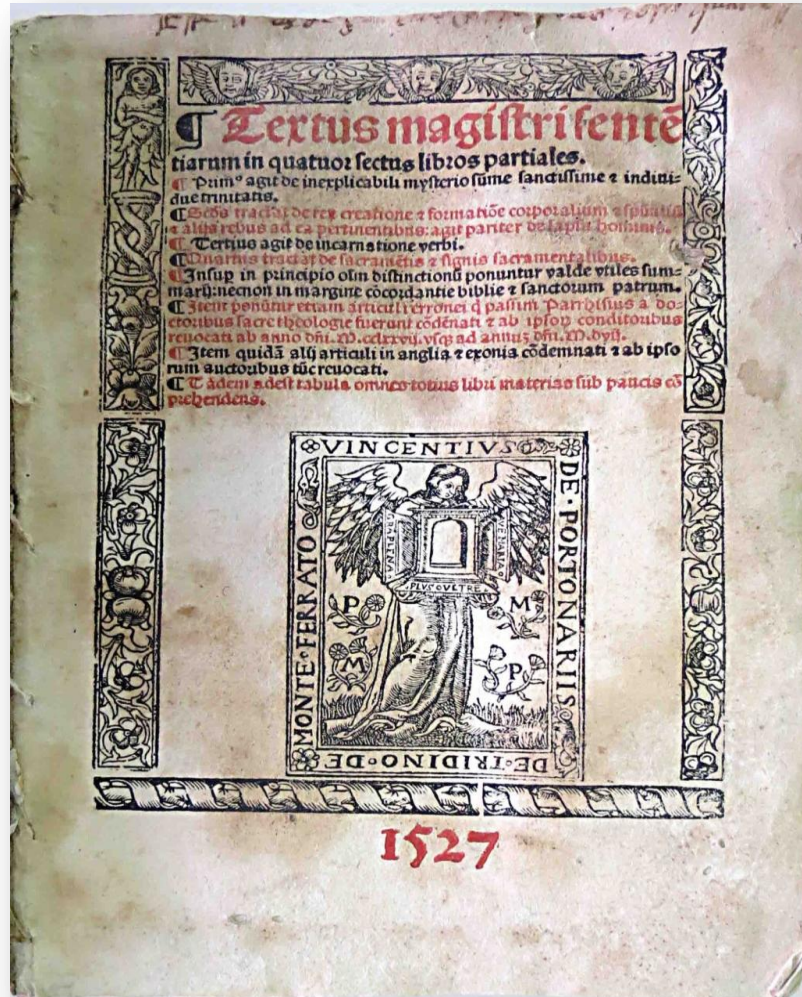 ¶ Textus magistri sentē
tiarum in quatuor sectus libros partiales.
¶ Primꝰ agit de inexplicabili mysterio sūme sanctissime ⁊ indiui-
due trinitatis.
¶ Scđs tractat de rerū creatione ⁊ formatiōe corporalium ⁊ spūaliū
⁊ alijs rebus ad ea pertinentibus: agit pariter de lapsu hominis.
¶ Tertius agit de incarnatione verbi.
¶ Quartus tractat de sacramētis ⁊ signis sacramentalibus.
¶ Insup in principio oīm distinctionū ponuntur valde vtiles sum-
marij: necnon in margine cōcordantie biblie ⁊ sanctorum patrum.
¶ Item ponūtur etiam articuli erronei q̄ passim Parrhisius a do-
ctoribus sacre theologie fuerunt cōdēnati ⁊ ab ipsoꝝ conditoribus
reuocati ab anno dñi. M.cclxxvij. vsqꝫ ad annuꝫ dñi. M.dvij.
¶ Item quidā alij articuli in anglia ⁊ exonia cōdemnati ⁊ ab ipso
rum auctoribus tūc reuocati.
¶ Tādem adest tabula omnes totius libri materias sub paucis cō
prehendens.
VINCENTIVS
DE·PORTONARIIS
DE·TRIDINO·DE
MONTE·FERRATO
PLVS OVLTRE
P M
M P
1527